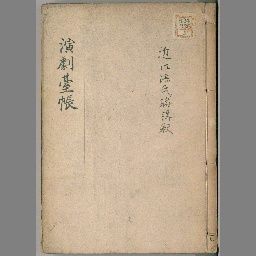 近江源氏㐧講釈
演劇臺帳